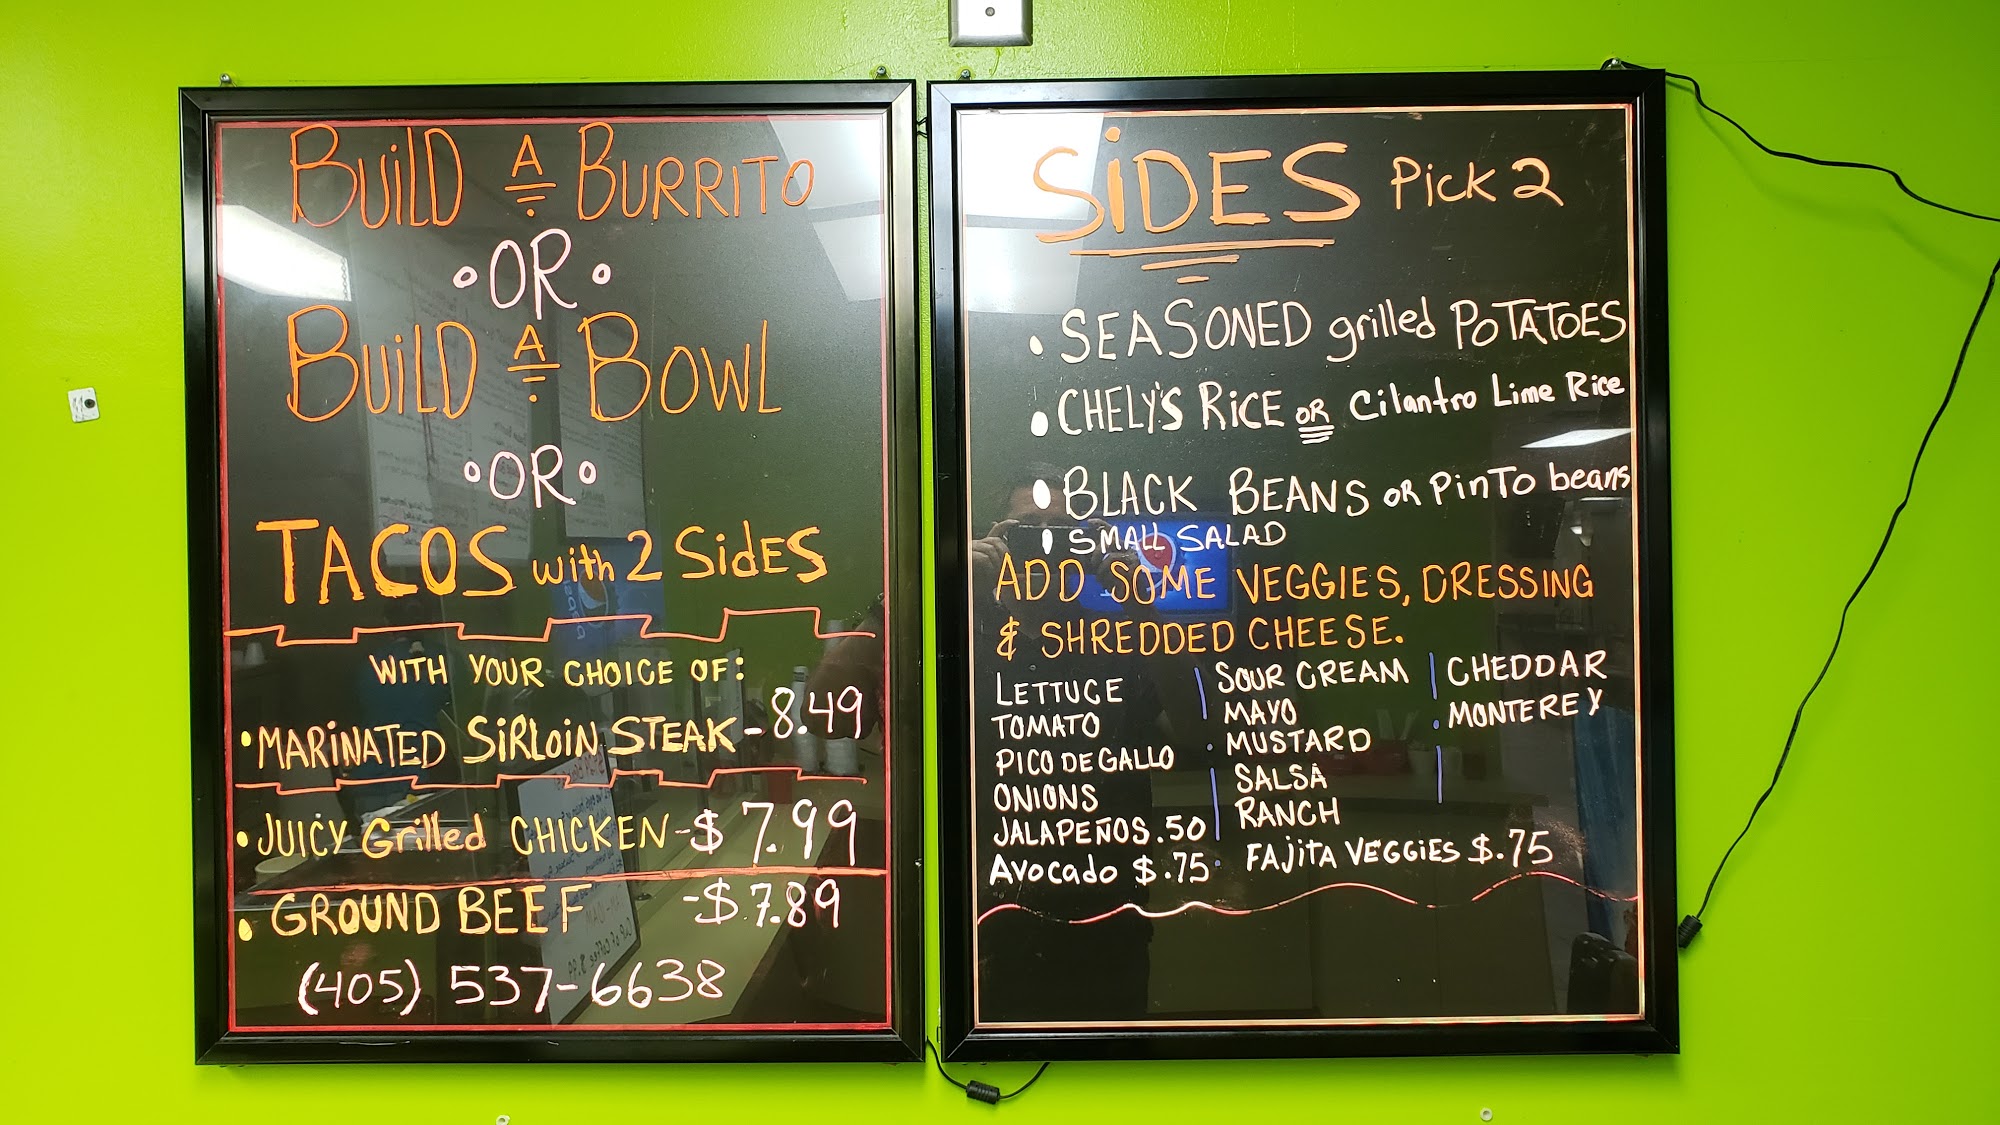 BUiLD A BURRITO
•OR•
BUiLD A BOWL
•OR•
TACOS with 2 SidES
WITH YOUR CHOICE OF:
•MARiNATED SiRLoiN STEAK - 8.49
•JUICY Grilled CHICKEN - $7.99
•GROUND BEEF - $7.89
(405) 537-6638
SiDES Pick 2
• SEASONED grilled POTATOES
• CHELY'S RiCE OR Cilantro Lime Rice
• BLACK BEANS OR PinTo beans
• SMALL SALAD
ADD SOME VEGGIES, DRESSING
& SHREDDED CHEESE.
LETTUCE
TOMATO
PICO DE GALLO
ONIONS
JALAPEÑOS .50
Avocado $.75
SOUR CREAM
MAYO
MUSTARD
SALSA
RANCH
FAjiTA VEGGIES $.75
CHEDDAR
MONTEREY